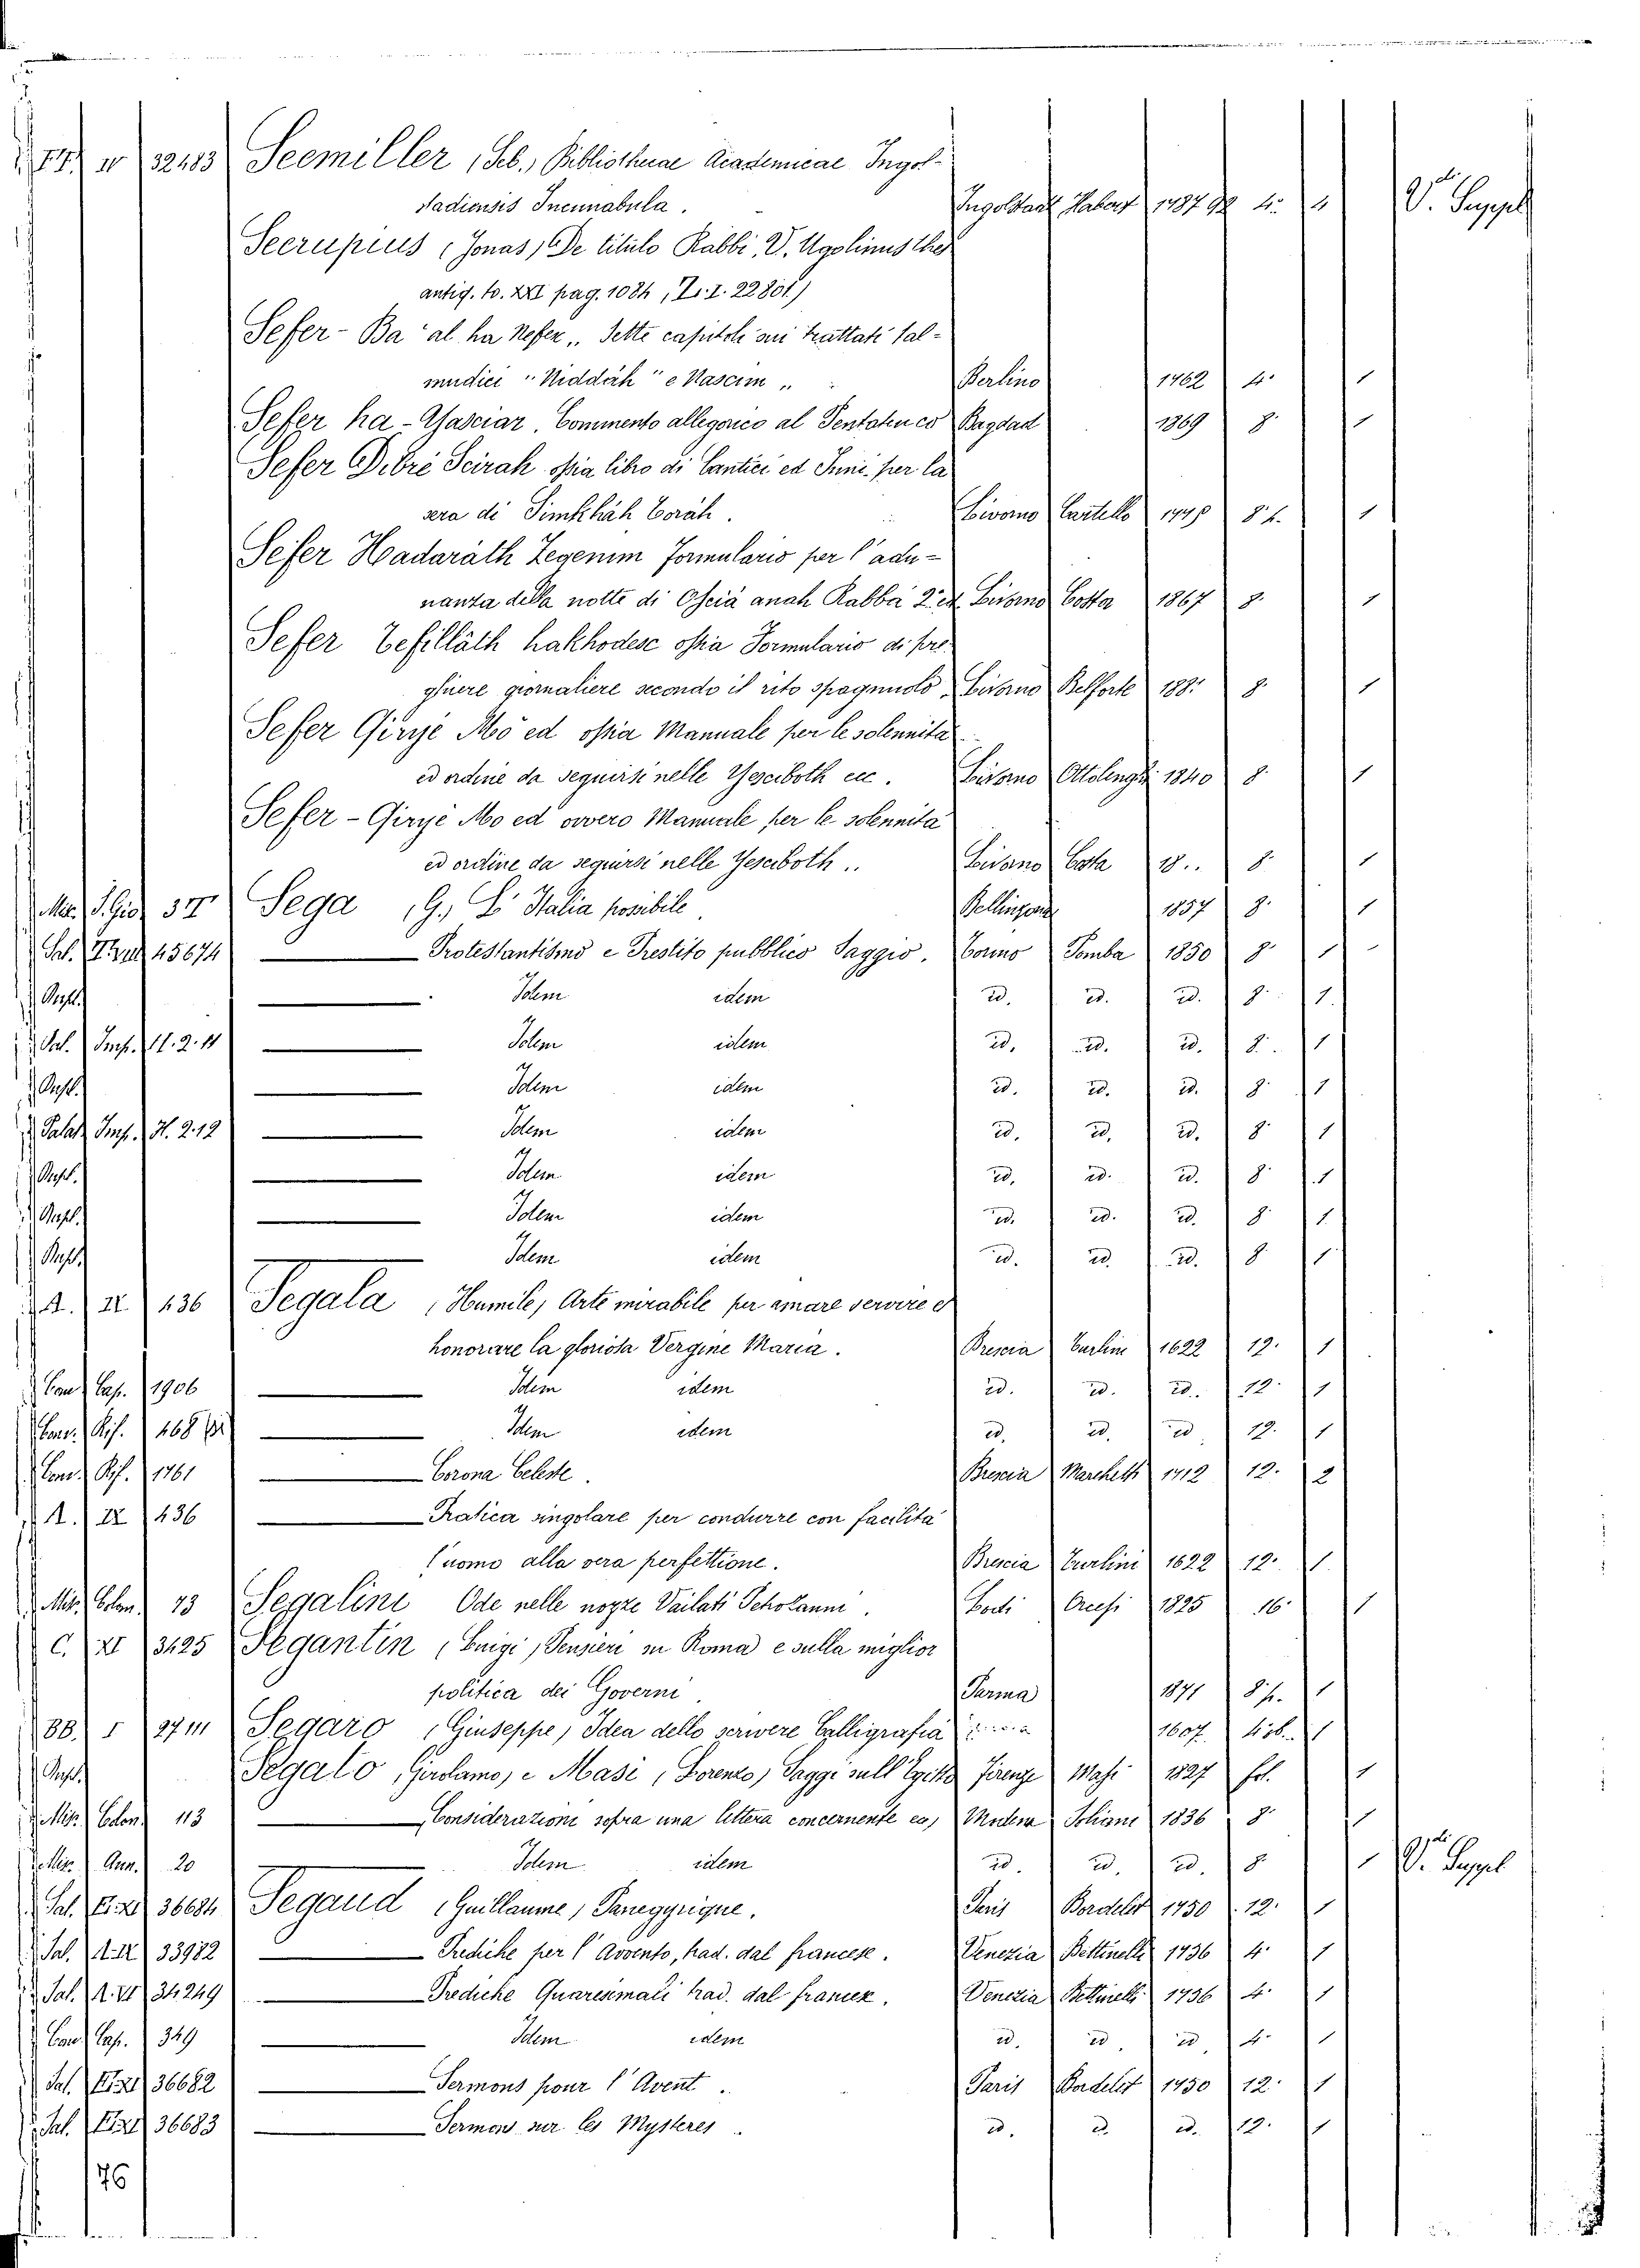 IV 32483 Seemiller, Seb., Bibliothecae Academicae Ingol-
stadiensis Incunabula. Ingolstadt Habert 1487 92 4. 4 V. Suppl
Seerupius (Jonas) De titulo Rabbi, V. Ugolinus thes
antiq. to. XXI pag. 1084, 22801)
Sefer - Ba'al ha Nefex „ Sette capitoli sui trattati tal-
mudici "Niddáh" e Nascim „ Berlino 1762 4. 1
Sefer ha - Ajasciar. Commento allegorico al Pentateuco Bagdad 1869 8. 1
Sefer Dibré Scirah ossia libro di Cantici ed Inni per la
sera di Simkháh Toráh. Livorno Castello 8. 1
Sefer Hadaráth Zegenim Formulario per l'adu-
nanza della notte di Osciá anah Rabbá Livorno Costa 1867 8. 1
Sefer Tefilláth hakhodesc ossia Formulario di pre
ghiere giornaliere secondo il rito spagnuolo. Livorno Belforte 188. 8. 1
Sefer Qirijé Mó ed ossia Manuale per le solennitá
ed ordine da seguirsi nelle Yesciboth ecc. Livorno Ottolenghi 1840 8. 1
Sefer - Qirijé Mo ed ovvero Manuale per le solennitá
ed ordine da seguirsi nelle Yesciboth .. Livorno Costa 18.. 8. 1
Mis. S. Gio. 37 Sega, G., L'Italia possibile Bellinzona 1857 8. 1
Sal. 45674 — Protestantismo e Prestito pubblico Saggio. Torino Pomba 1850 8 1
Idem idem id. id. id. 8. 1.
Sal. Imp. H. 2. 11 — Idem idem id. id. id. 8. 1
— Idem idem id. id. id. 8. 1
Palat. Imp. H. 2. 12 — Idem idem id. id. id. 8. 1
— Idem idem id. id. id. 8. 1
— Idem idem id. id. id. 8. 1
— Idem idem id. id. id. 8. 1
A. IX 436 Segala, Humile, Arte mirabile per amare servire et
honorare la gloriosa Vergine Maria. Brescia Turlino 1622 12. 1
Con. Cap. 1906 — Idem idem id. id. id. 12. 1
Conv. Rif. 468 — Idem idem id. id. id. 12. 1
Conv. Rif. 1761 — Corona Celeste. Brescia Marchetti 1712 12. 2
A. IX 436 — Pratica singolare per condurre con facilitá
l'uomo alla vera perfettione. Brescia Turlini 1622 12. 1.
Mis. Colon. 13 Segalini Ode nelle nozze Vailati Scholaum. Lodi Orcesi 1825 16. 1
C. XI 3425 Segantin, Luigi, Pensieri in Roma e sulla miglior
politica dei Governi Parma 1871 8. 1
BB. I 27111 Segaro, Giuseppe, Idea dello scrivere Calligrafia 1607. 4. ob. 1
Segato, Girolamo, e Masi, Lorenzo, Saggi sull Egitto Firenze Masi 1827 fol. 1
Mis. Colon. 113 — Considerazione sopra una lettera concernente es, Modena Soliani 1836 8. 1
Mis. Ann. 20 — Idem idem id. id. id. 8 1 V. Suppl
Sal. 36684 Segaud, Guillaume, Panegyrique. Paris Bordelet 1750 12. 1
Sal. A. IX 33982 — Prediche per l'Avvento, trad. dal francese. Venezia Bettinelli 1736 4. 1
Sal. A. VI 34249 — Prediche Quaresimali trad. dal francese. Venezia Bettinelli 1736 4. 1
Con. Cap. 349 — Idem idem id. id. id. 4. 1
Sal. 36682 — Sermons pour l'Avent. Paris Bordelet 1750 12. 1
Sal. 36683 — Sermons sur les Mysteres. id. id. id. 12. 1
76